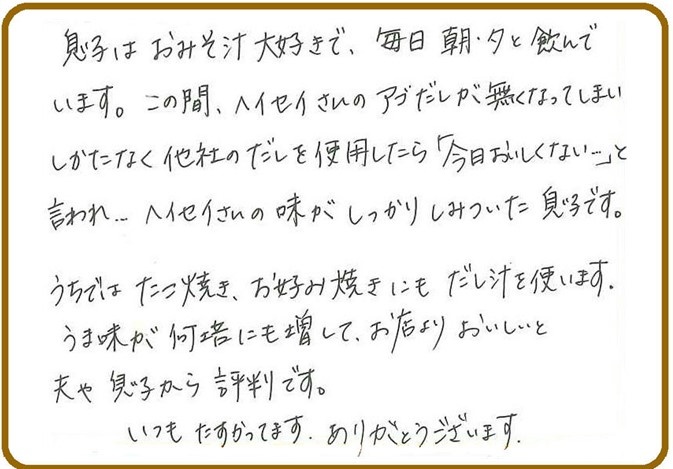 息子は おみそ汁 大好きで、毎日 朝・夕と 飲んで
います。この間、ヘイセイさんの アゴだしが 無くなってしまい
しかたなく 他社の だしを 使用したら「今日おいしくない…」と
言われ… ヘイセイさんの 味が しっかり しみついた 息子です。
うちでは たこ焼き、お好み焼きにも だし汁を使います.
うま味が 何倍にも増して、お店より おいしいと
夫や 息子から 評判です。
いつも たすかってます. ありがとうございます.